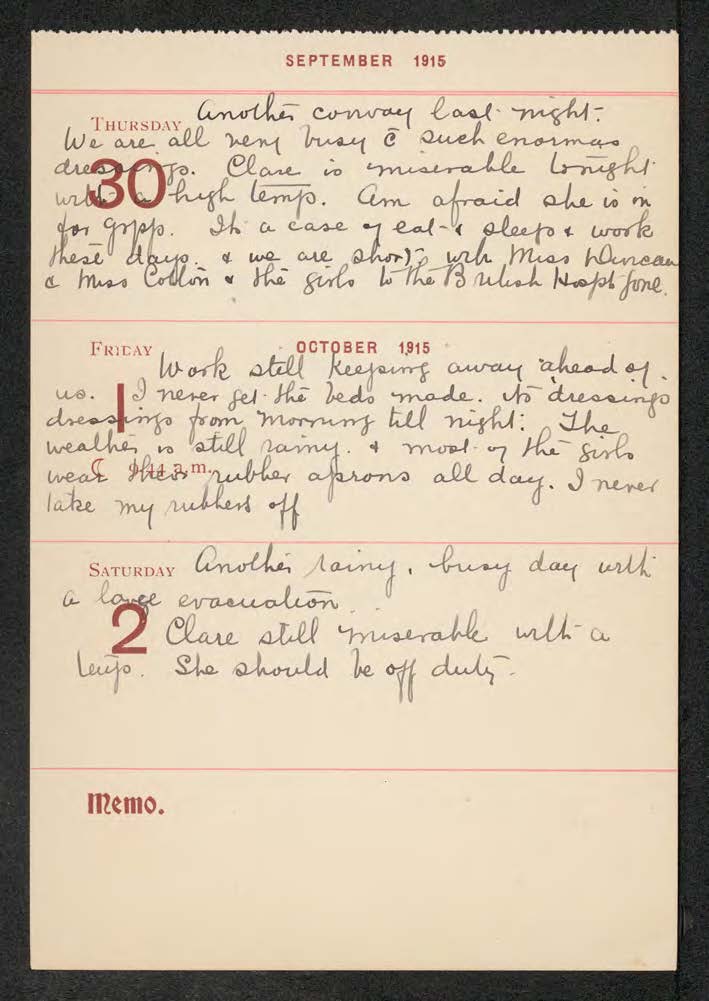 SEPTEMBER 1915
THURSDAY Another convoy last night.
We are all very busy c̄ such enormas
dressings. Clare is miserable tonight
30
with a high temp. Am afraid she is in
for gripp. It's a case of eat & sleep & work
these days. & we are short, with Miss Duncan
& Miss Cotton & the girls to the British Hospt gone.
FRIDAY OCTOBER 1915
Work still keeping away ahead of
us. I never get the beds made. Its dressings
1
dressings from morning till night. The
weather is still rainy. & most of the girls
☾ 9.44 a.m.
wear their rubber aprons all day. I never
take my rubbers off
SATURDAY Another rainy, busy day with
a large evacuation.
2
Clare still miserable with a
temp. She should be off duty.
Memo.